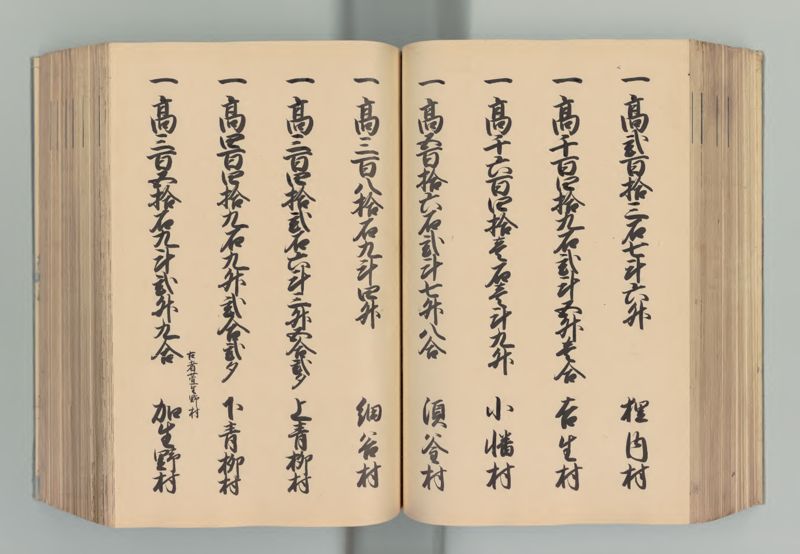 一高弐百拾三石七斗六升 狸内村
一高千百四拾九石弐斗五升壱合 吉生村
一高千六百四拾壱石壱斗九升 小幡村
一高五百拾六石弐斗七升八合 須釜村
一高三百八拾石九斗四升 細谷村
一高三百四拾弐石六斗三升五合弐夕 上青柳村
一高四百四拾九石九升弐合弐夕 下青柳村
古者萱生野村
一高三百五拾石九斗弐升九合 加生野村